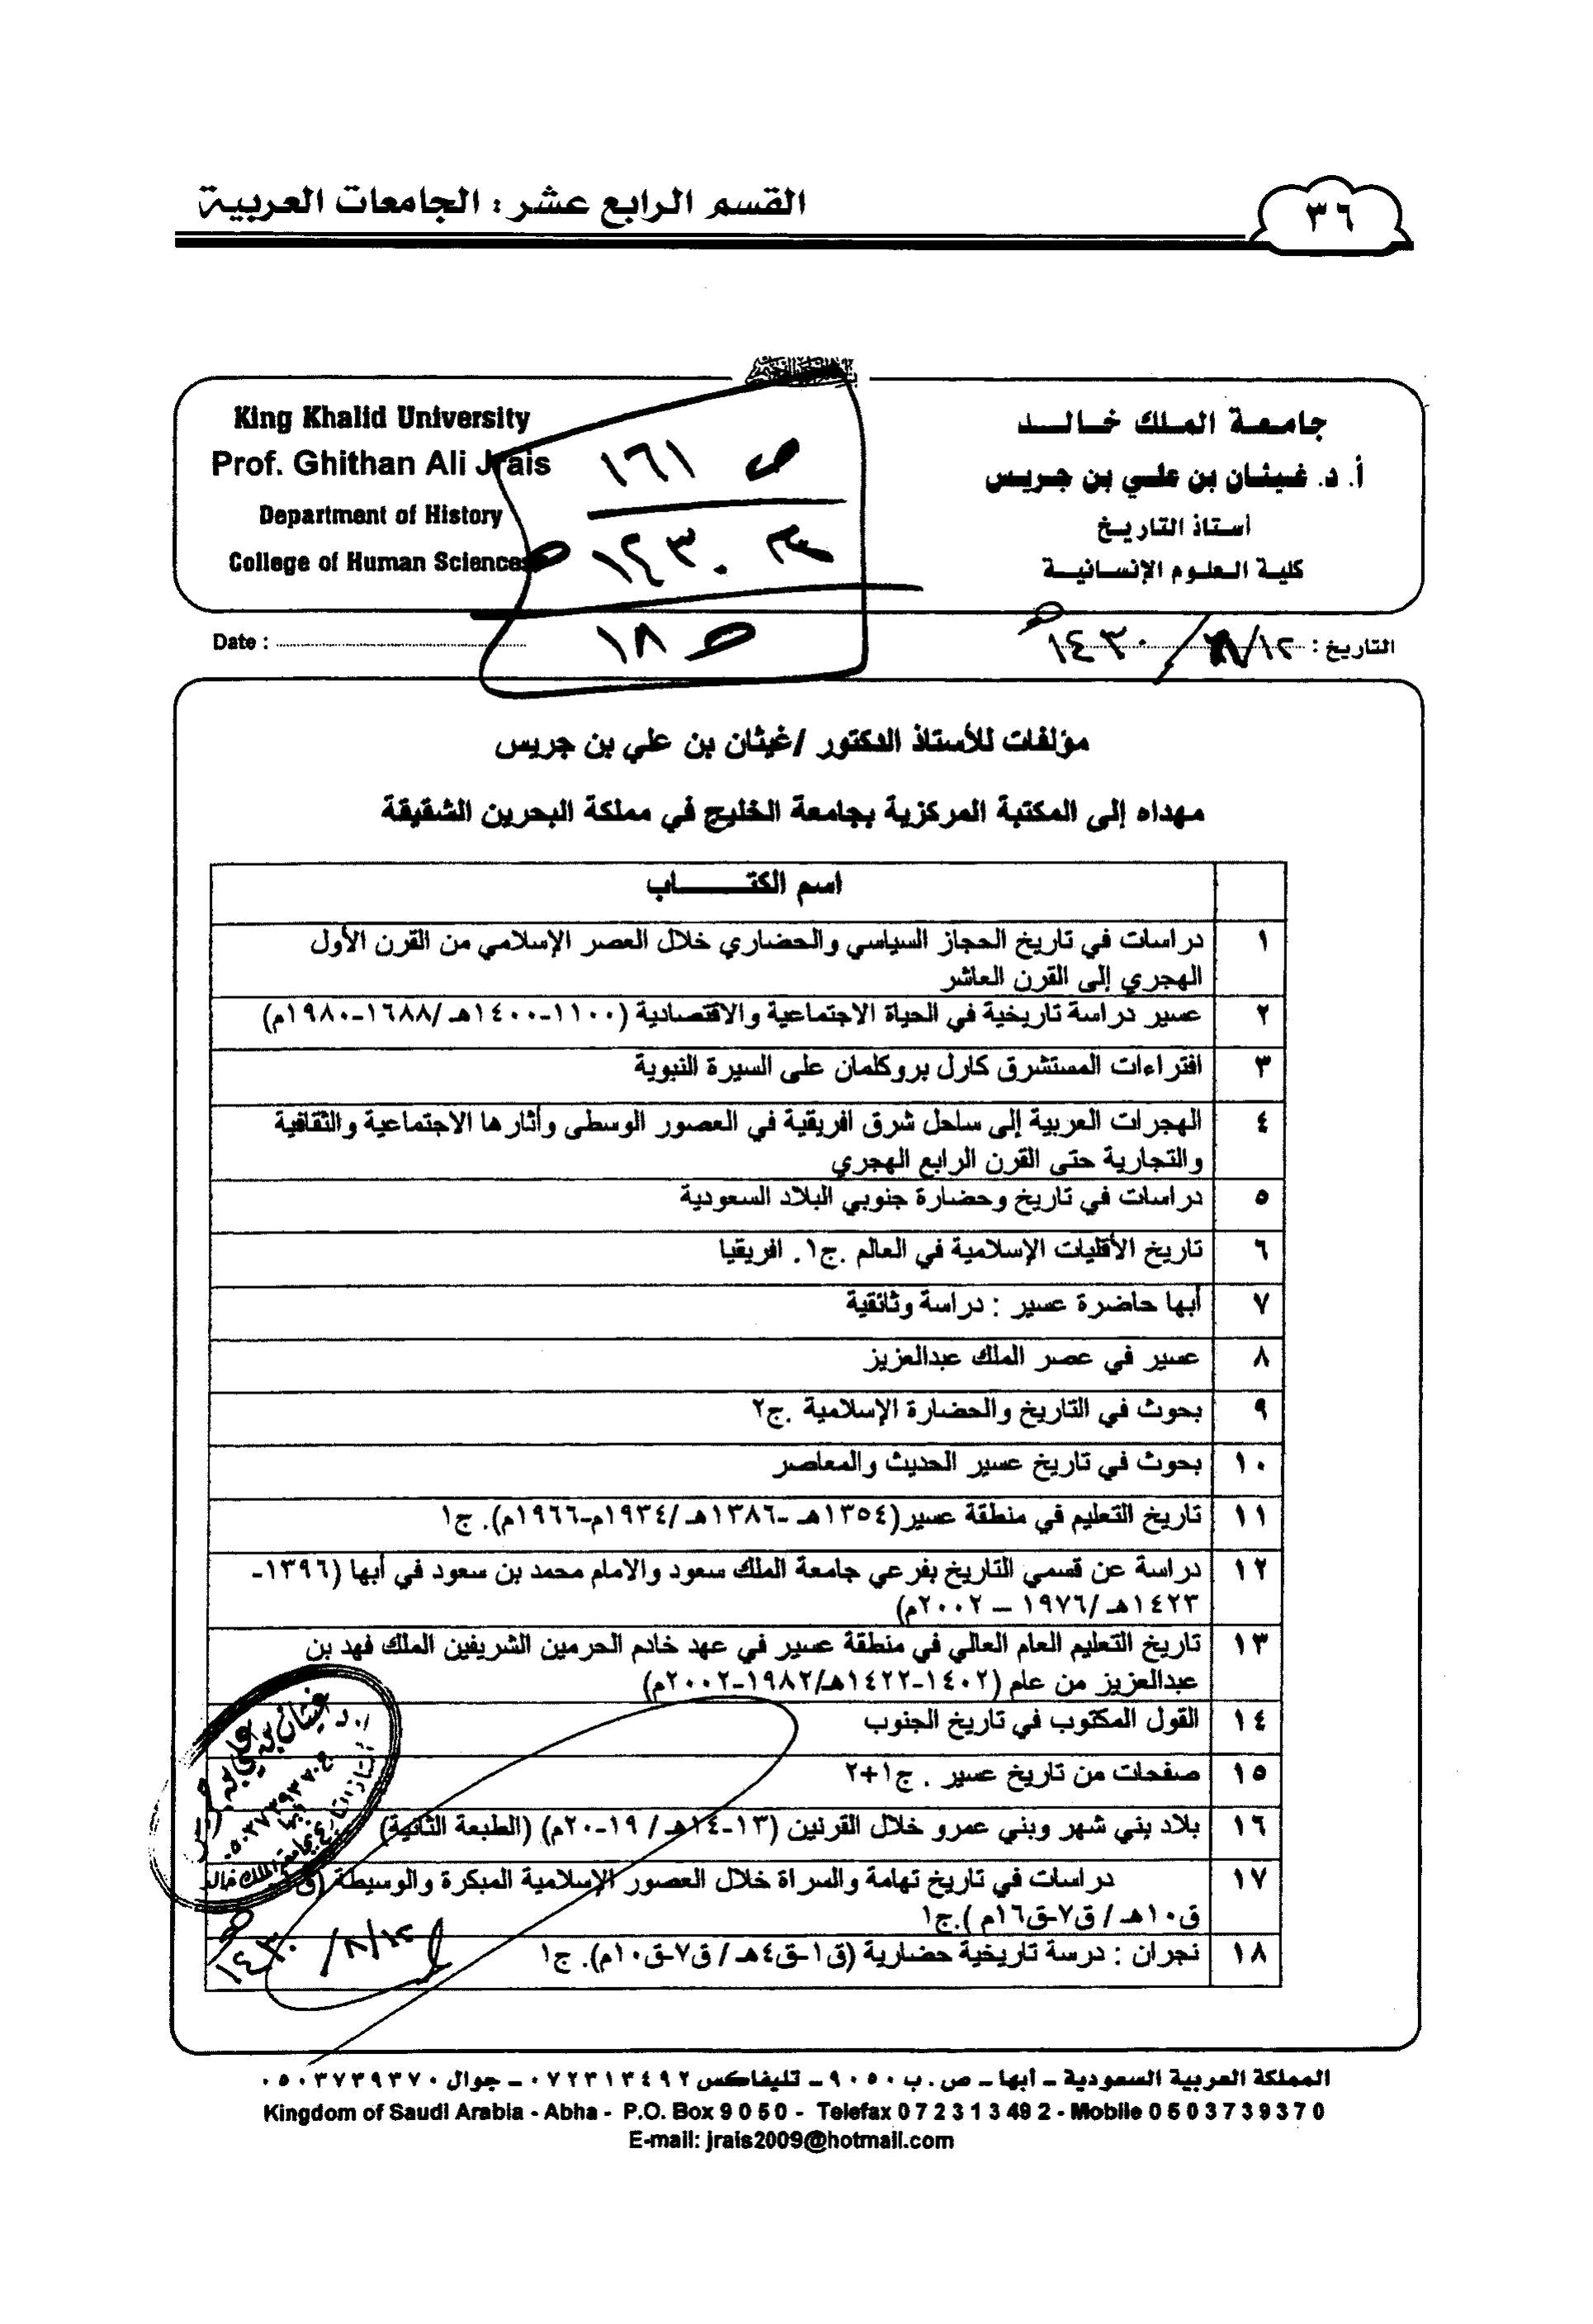 القسم الرابع عشر : الجامعات العربية
٣٦
جامعة الملك خالد
أ. د. غيثان بن علي بن جريس
أستاذ التاريخ
كلية العلوم الإنسانية
King Khalid University
Prof. Ghithan Ali Jrais
Department of History
College of Human Sciences
ص ١٦١
١٤٣٠
ص ١٨
التاريخ : ١٢/٨/١٤٣٠هـ
Date :
مؤلفات للأستاذ الدكتور /غيثان بن علي بن جريس
مهداه إلى المكتبة المركزية بجامعة الخليج في مملكة البحرين الشقيقة
اسم الكتـــــــاب
١ دراسات في تاريخ الحجاز السياسي والحضاري خلال العصر الإسلامي من القرن الأول
الهجري إلى القرن العاشر
٢ عسير دراسة تاريخية في الحياة الاجتماعية والاقتصادية (١١٠٠-١٤٠٠هـ/١٦٨٨-١٩٨٠م)
٣ افتراءات المستشرق كارل بروكلمان على السيرة النبوية
٤ الهجرات العربية إلى ساحل شرق افريقية في العصور الوسطى وأثارها الاجتماعية والثقافية
والتجارية حتى القرن الرابع الهجري
٥ دراسات في تاريخ وحضارة جنوبي البلاد السعودية
٦ تاريخ الأقليات الإسلامية في العالم .ج١. افريقيا
٧ أبها حاضرة عسير : دراسة وثائقية
٨ عسير في عصر الملك عبدالعزيز
٩ بحوث في التاريخ والحضارة الإسلامية .ج٢
١٠ بحوث في تاريخ عسير الحديث والمعاصر
١١ تاريخ التعليم في منطقة عسير(١٣٥٤هـ -١٣٨٦هـ/١٩٣٤م-١٩٦٦م). ج١
١٢ دراسة عن قسمي التاريخ بفرعي جامعة الملك سعود والامام محمد بن سعود في أبها (١٣٩٦-
١٤٢٣هـ/١٩٧٦ – ٢٠٠٢م)
١٣ تاريخ التعليم العام العالي في منطقة عسير في عهد خادم الحرمين الشريفين الملك فهد بن
عبدالعزيز من عام (١٤٠٢-١٤٢٢هـ/١٩٨٢-٢٠٠٢م)
١٤ القول المكتوب في تاريخ الجنوب
١٥ صفحات من تاريخ عسير . ج١+٢
١٦ بلاد بني شهر وبني عمرو خلال القرنين (١٣-١٤هـ/ ١٩-٢٠م) (الطبعة الثانية)
١٧ دراسات في تاريخ تهامة والسراة خلال العصور الإسلامية المبكرة والوسيطة (ق
ق١٠هـ / ق٧-ق١٦م ).ج١
١٨ نجران : درسة تاريخية حضارية (ق١-ق٤هـ / ق٧-ق١٠م). ج١
أ. د. غيثان بن علي بن جريس
٠٥٠٣٧٣٩٣٧٠
١٢/٨/١٤٣٠هـ
المملكة العربية السعودية – أبها – ص . ب ٩٠٥٠ – تليفاكس ٠٧٢٣١٣٤٩٢ – جوال ٠٥٠٣٧٣٩٣٧٠
Kingdom of Saudi Arabia - Abha - P.O. Box 9 0 5 0 - Telefax 0 7 2 3 1 3 49 2 - Mobile 0 5 0 3 7 3 9 3 7 0
E-mail: jrais2009@hotmail.com